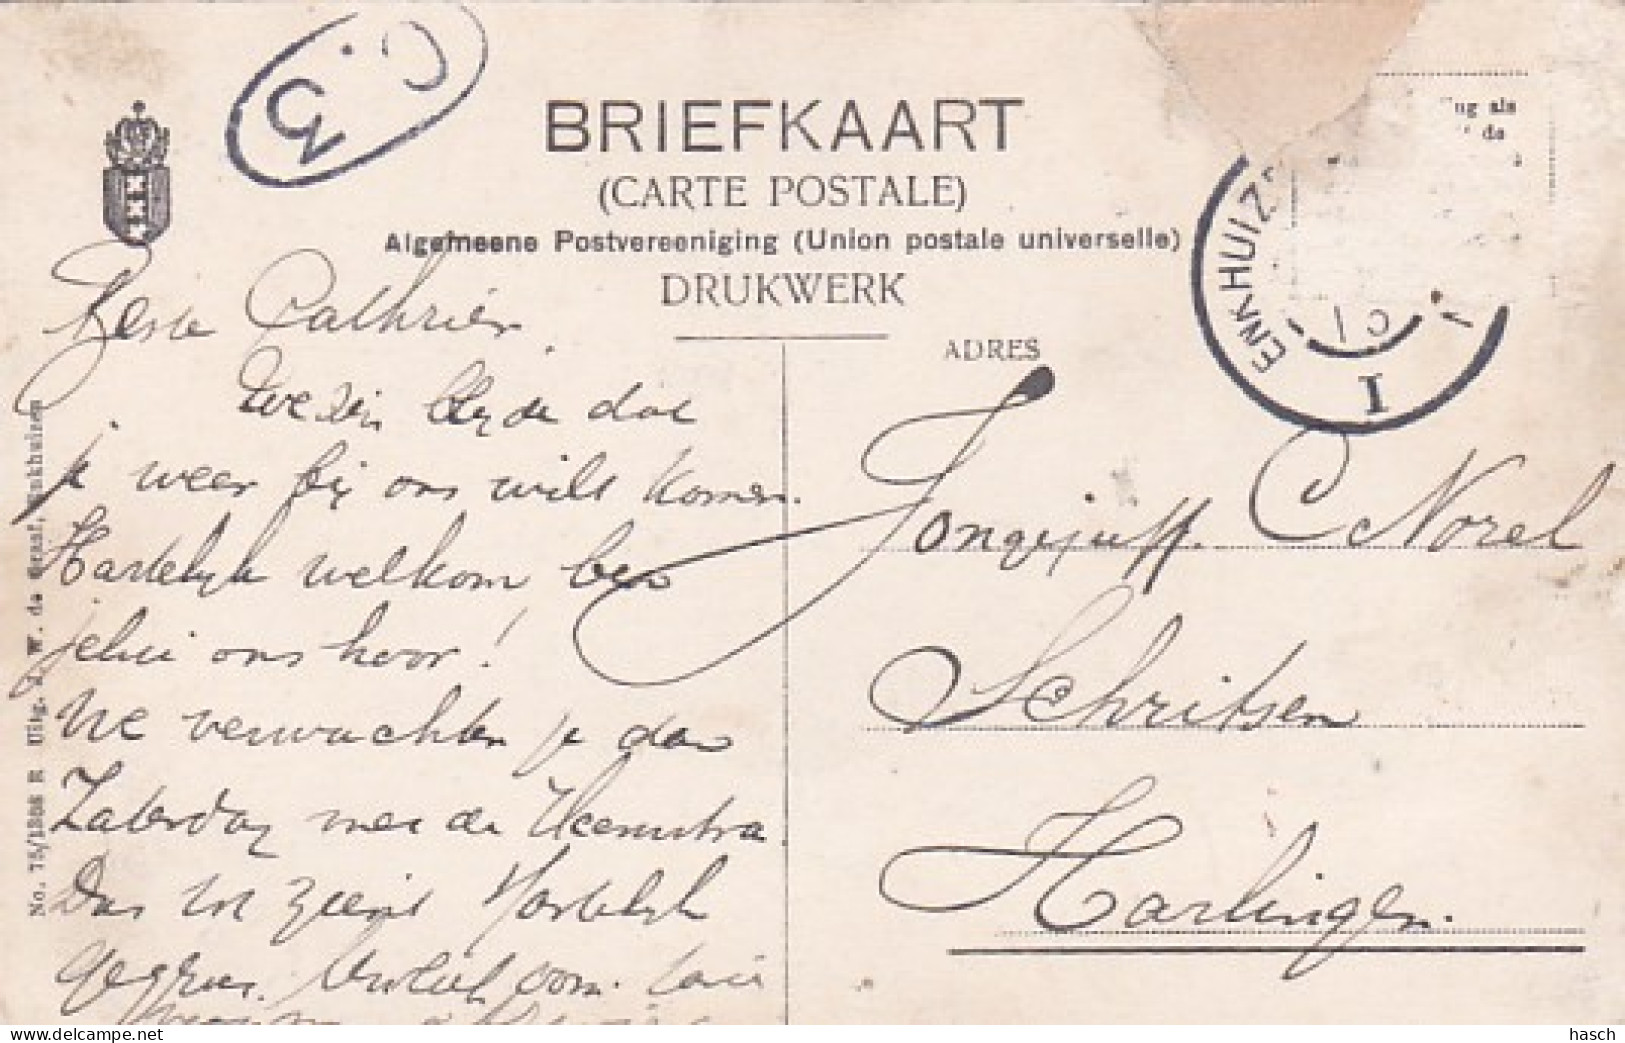 BRIEFKAART
(CARTE POSTALE)
Algemeene Postvereeniging (Union postale universelle)
DRUKWERK
ADRES
ENKHUIZ
I
ug als
de
No. 75/1866 R Uitg. J. W. de Graaf, Enkhuizen
Cathrien
We zijn blijde dat
je weer bij ons wilt komen.
Hartelijk welkom ben
jelui ons hoor!
We verwachten je dan
Zaterdag met de Heemstra
Dus tot ziens Hartelijk
gegroet. oom.
Jongejuff. C Norel
Schritsen
Harlingen.
hasch